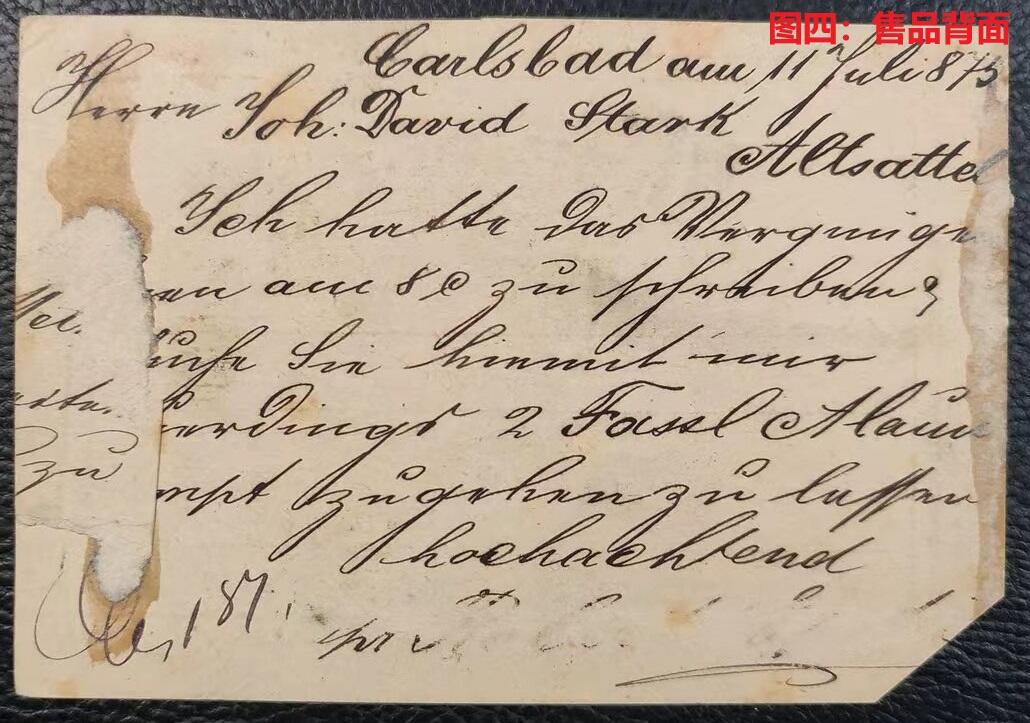 图四：售品背面
Carlsbad am 11 Juli 875
Herrn Joh: David Stark
Altsattel
Ich hatte das Vergnüge
en am 8 c zu schreiben &
uche Sie hiemit mir
erdings 2 Fassl Alaun
mpt zugehen zu lassen
zu
hochachtend
187